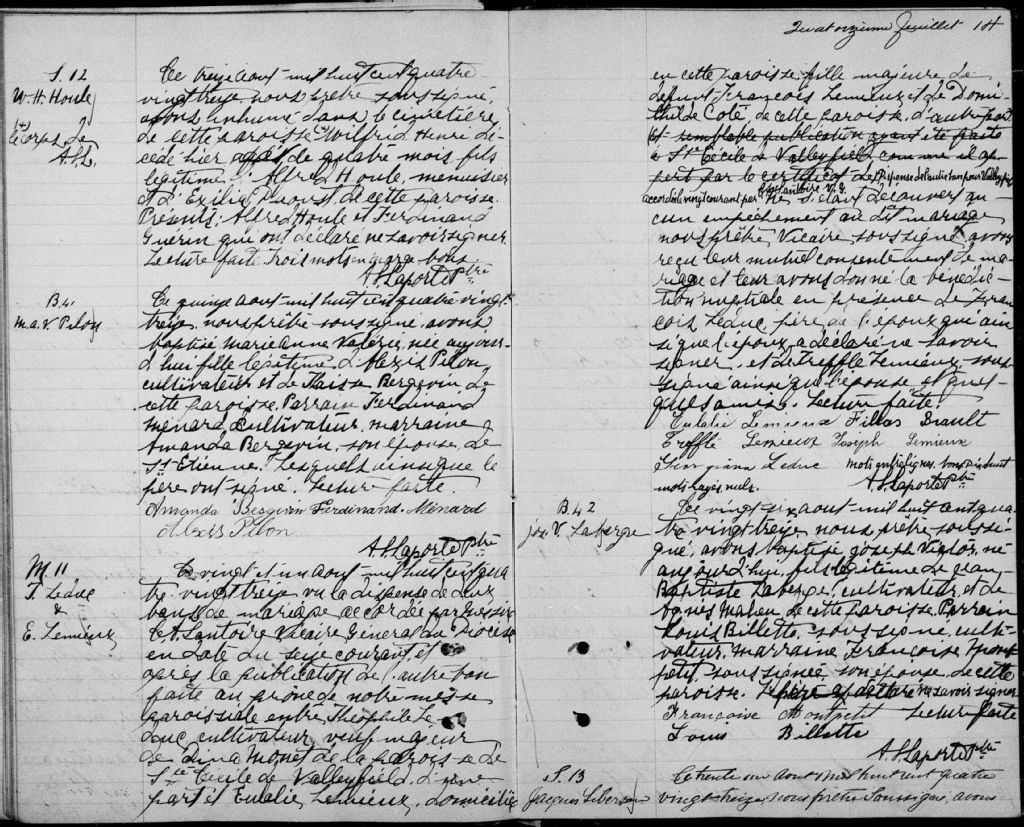 Quatorzième feuillet 14
S. 12
W. H. Houle
Le treize août mil huit cent quatre
vingt treize, nous prêtre soussigné,
avons inhumé dans le cimetière
de cette paroisse le corps de Wilfrid Henri dé-
cédé hier, de quatre mois, fils
légitime d'Alfred Houle, menuisier
et d'Exilia Daoust, de cette paroisse.
Présents: Alfred Houle et Ferdinand
Guérin qui ont déclaré ne savoir signer.
Lecture faite. Trois mots en marge bons
A. S. Laporte Ptre
le corps de
A. S. L.
B. 41
M. A. V. Pilon
Le quinze août mil huit cent quatre vingt
treize, nous prêtre soussigné, avons
baptisé Marie Anne Valérie, née aujour-
d'hui fille légitime d'Alexis Pilon,
cultivateur et de Thaïsse Bergevin de
cette paroisse. Parrain Ferdinand
Ménard, cultivateur, marraine
Amanda Bergevin, son épouse, de
St Etienne. Lesquels ainsi que le
père ont signé. Lecture faite.
Amanda Bergevin Ferdinand Ménard
Alexis Pilon
A. S. Laporte Ptre
M 11
T. Leduc
&
E. Lemieux
Le vingt et un août mil huit cent qua
tre vingt treize, vu la dispense de deux
bans de mariage accordée par Messire
Santoire Vicaire Général du Diocèse
en date du seize courant, et
après la publication de l'autre ban
faite au prône de notre messe
paroissiale entre Théophile Le-
duc cultivateur, veuf majeur
de Dina Monet de la paroisse de
Ste Cécile de Valleyfield, d'une
part et Eulalie Lemieux, domiciliée
en cette paroisse, fille majeure de
défunt François Lemieux et de Domi-
thilde Coté, de cette paroisse, d'autre part
et semblable publication ayant été faite
à Ste Cécile de Valleyfield comme il ap-
pert par le certificat de Dispense de l'autre ban pour Valleyfield
accordée le vingt courant par Santoire V. G. Ne s'étant découvert au-
cun empêchement au dit mariage
nous prêtre, Vicaire soussigné avons
reçu leur mutuel consentement de ma-
riage et leur avons donné la bénédic-
tion nuptiale en présence de Fran-
çois Leduc, père de l'époux qui ain-
si que l'époux a déclaré ne savoir
signer, et de Trefflé Lemieux sous-
signé ainsi que l'épouse et quel-
ques amis. Lecture faite.
Eulalie Lemieux Fillas Drault
Trefflé Lemieux Joseph Lemieux
Georgiana Leduc mots entrelignes bons
mots rayés nuls. A. S. Laporte Ptre
B. 42
Jos. V. Laberge
Le vingt six août mil huit cent qua-
tre vingt treize, nous prêtre soussi-
gné, avons baptisé Joseph Victor, né
aujourd'hui, fils légitime de Jean-
Baptiste Laberge, cultivateur, et de
Agnès Maheu de cette paroisse. Parrain
Louis Billette, soussigné, culti-
vateur, marraine, Françoise Mont-
petit, soussignée, son épouse, de cette
paroisse. Le père a déclaré ne savoir signer
Françoise Montpetit Lecture faite
Louis Billette
A. S. Laporte Ptre
S. 13
Le trente un août mil huit cent quatre
vingt treize, nous prêtre Soussigné, avons